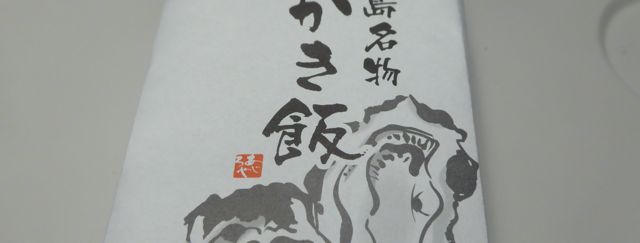 島名物
かき飯